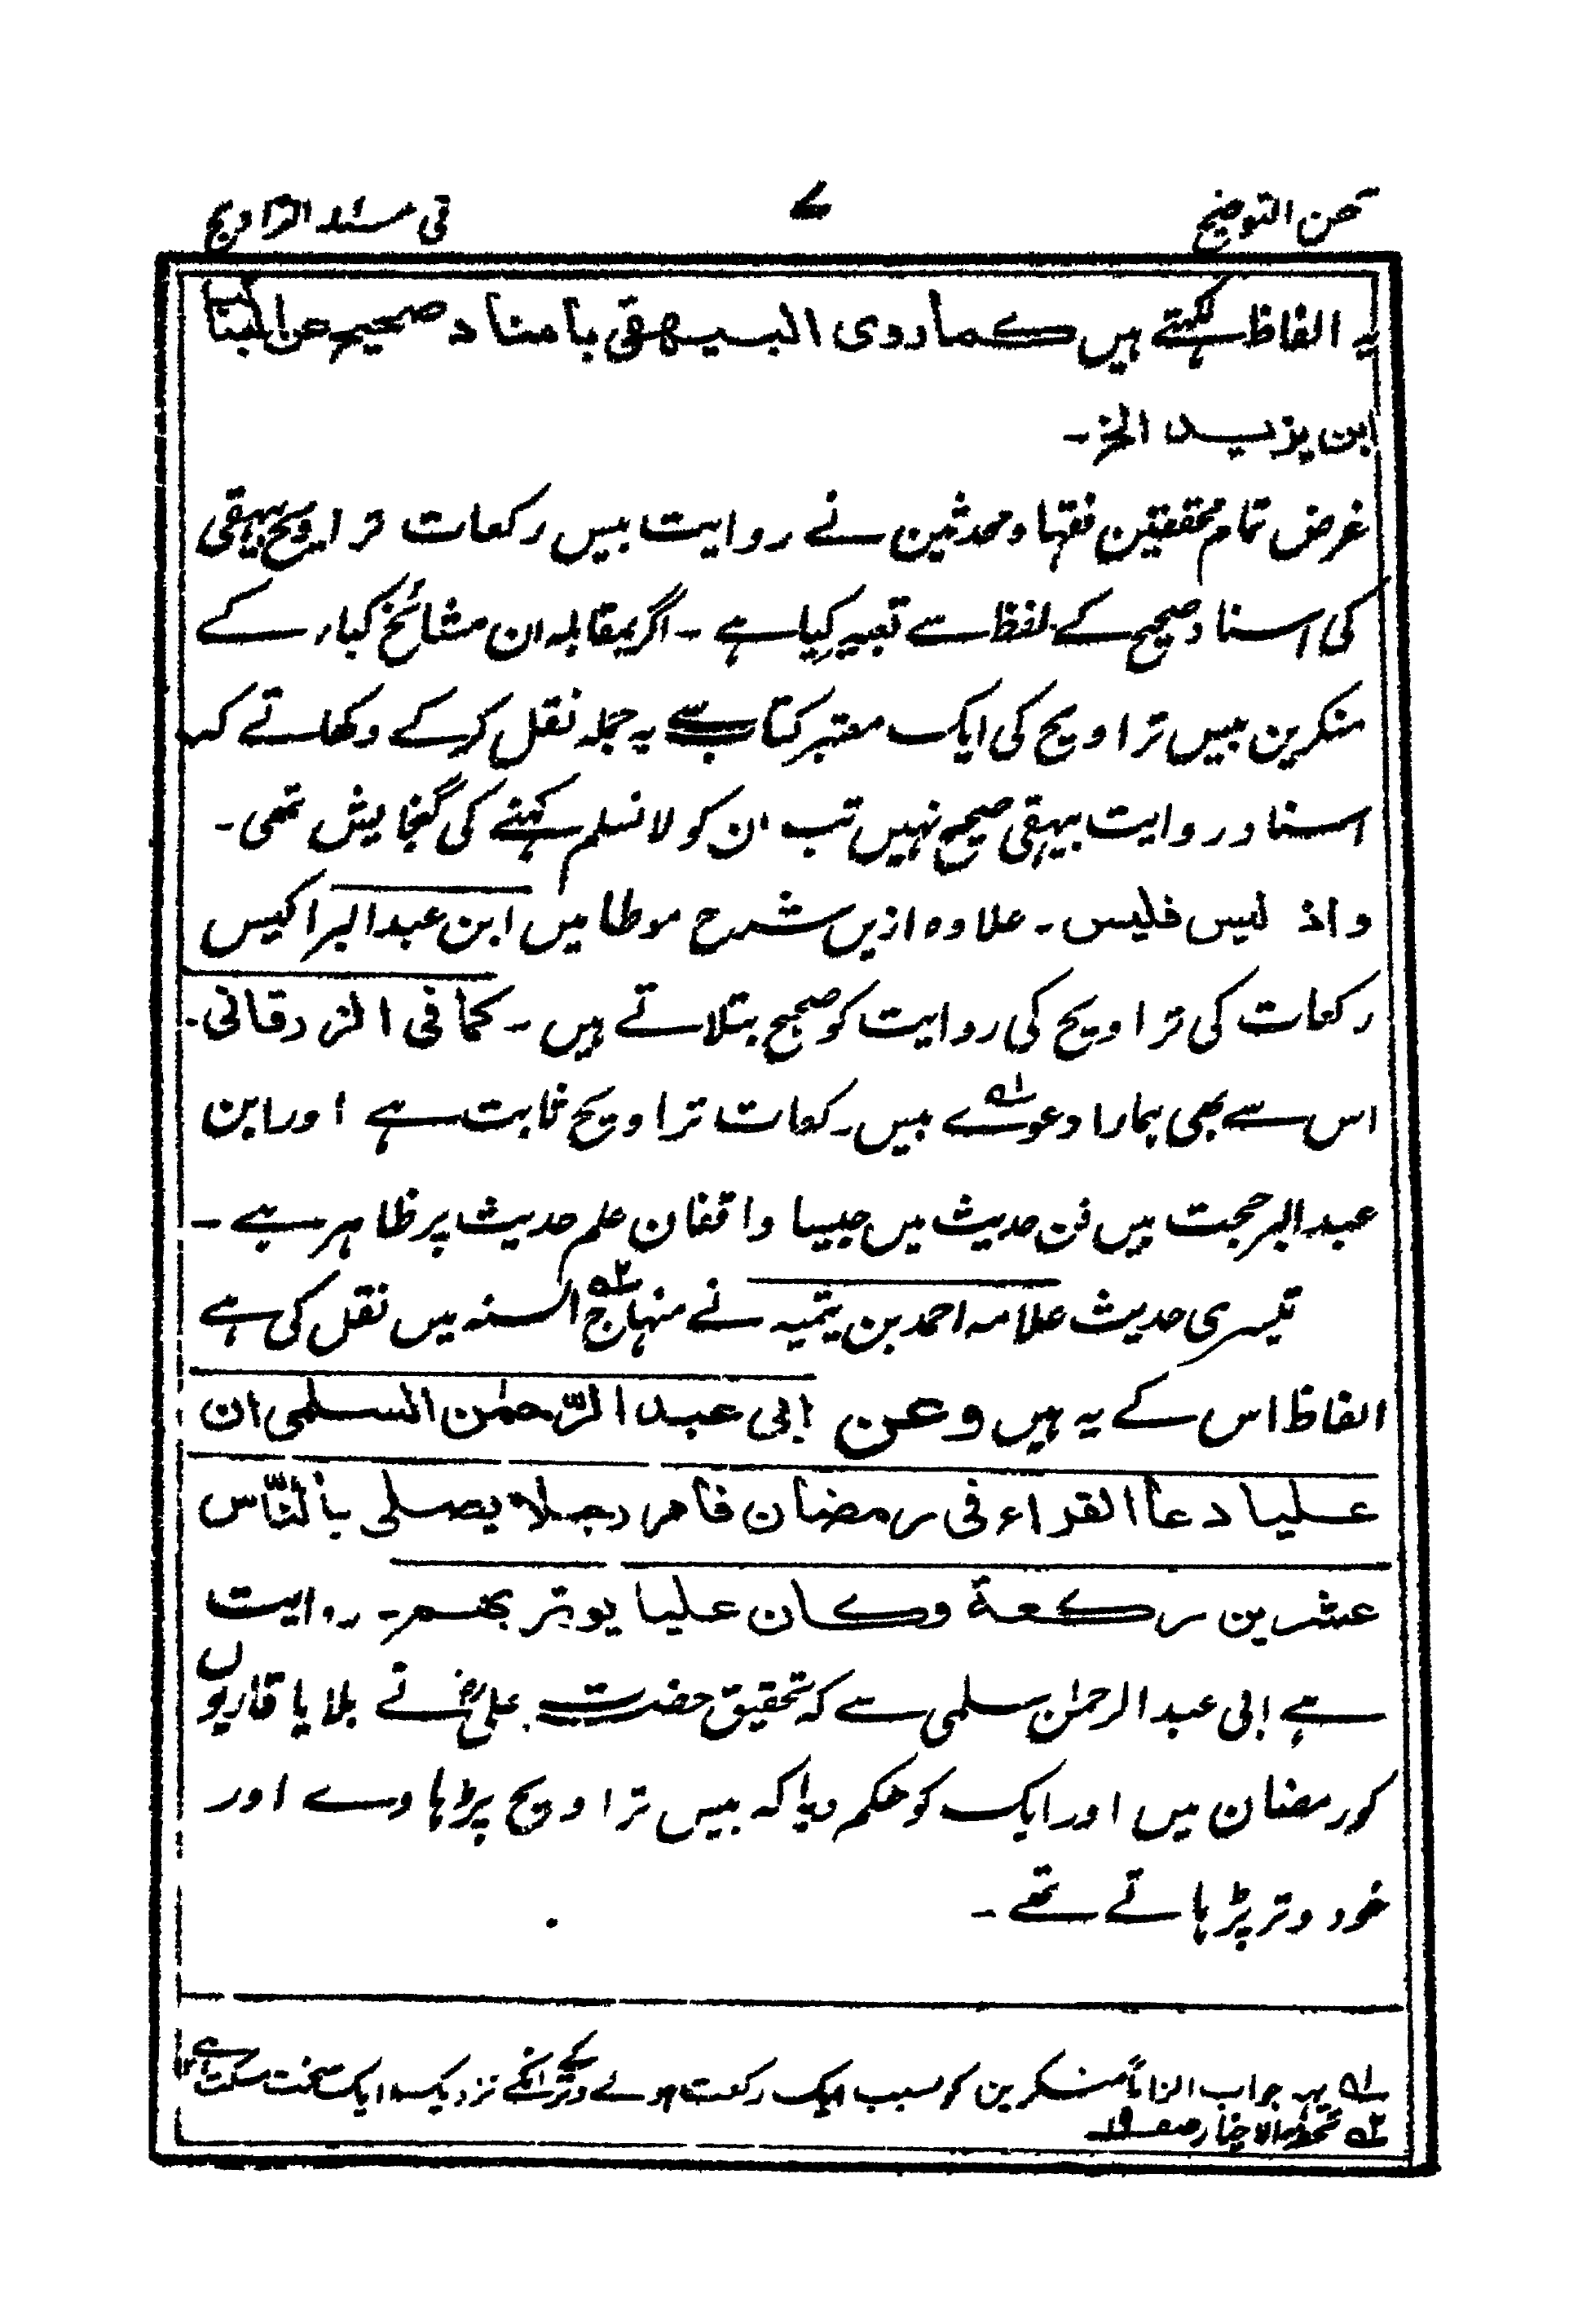 حسن التوضیح ۷ فی مسئلہ التراویح
یہ الفاظ لکھتے ہیں کما روی البیھقی باسناد صحیح عن السائب
ابن یزید الخ۔
غرض تمام محققین فقہا و محدثین نے روایت بیس رکعات تراویح بیہقی
کی اسناد صحیح کے لفظ سے تعبیر کیا ہے ۔ اگر بمقابلہ ان مشائخ کبار کے
منکرین بیس تراویح کی ایک معتبر کتاب سے یہ جملہ نقل کر کے دکھاتے کہ
اسناد روایت بیہقی صحیح نہیں تب ان کو لا نسلم کہنے کی گنجایش تھی۔
واذ لیس فلیس۔ علاوہ ازیں شرح موطا میں ابن عبد البر اکیس
رکعات کی تراویح کی روایت کو صحیح بتلاتے ہیں ۔ کما فی الزرقانی۔
اس سے بھی ہمارا دعوے ۱؎ بیس رکعات تراویح ثابت ہے اور ابن
عبد البر حجت ہیں فن حدیث میں جیسا واقفان علم حدیث پر ظاہر ہے ۔
تیسری حدیث علامہ احمد بن یتمیہ نے منہاج ۲؎ السنہ میں نقل کی ہے
الفاظ اس کے یہ ہیں وعن ابی عبد الرّحمٰن السلمی ان
علیا دعا القراء فی رمضان فامر رجلا یصلی بالنّاس
عشرین رکعة وکان علیا یوتر بھم۔ روایت
ہے ابی عبد الرحمٰن سلمی سے کہ تحقیق حضرت علیؓ نے بلایا قاریوں
کو رمضان میں اور ایک کو حکم دیا کہ بیس تراویح پڑہاوے اور
خود وتر پڑہاتے تھے ۔
۱؎ یہہ جواب الزاماً منکرین کو بسبب ایک رکعت ہونے وتر کے انکے نزدیک ایک سخت سکت ہے ۱۲
۲؎ تحفۃ الاخیار صفہ ۱۹